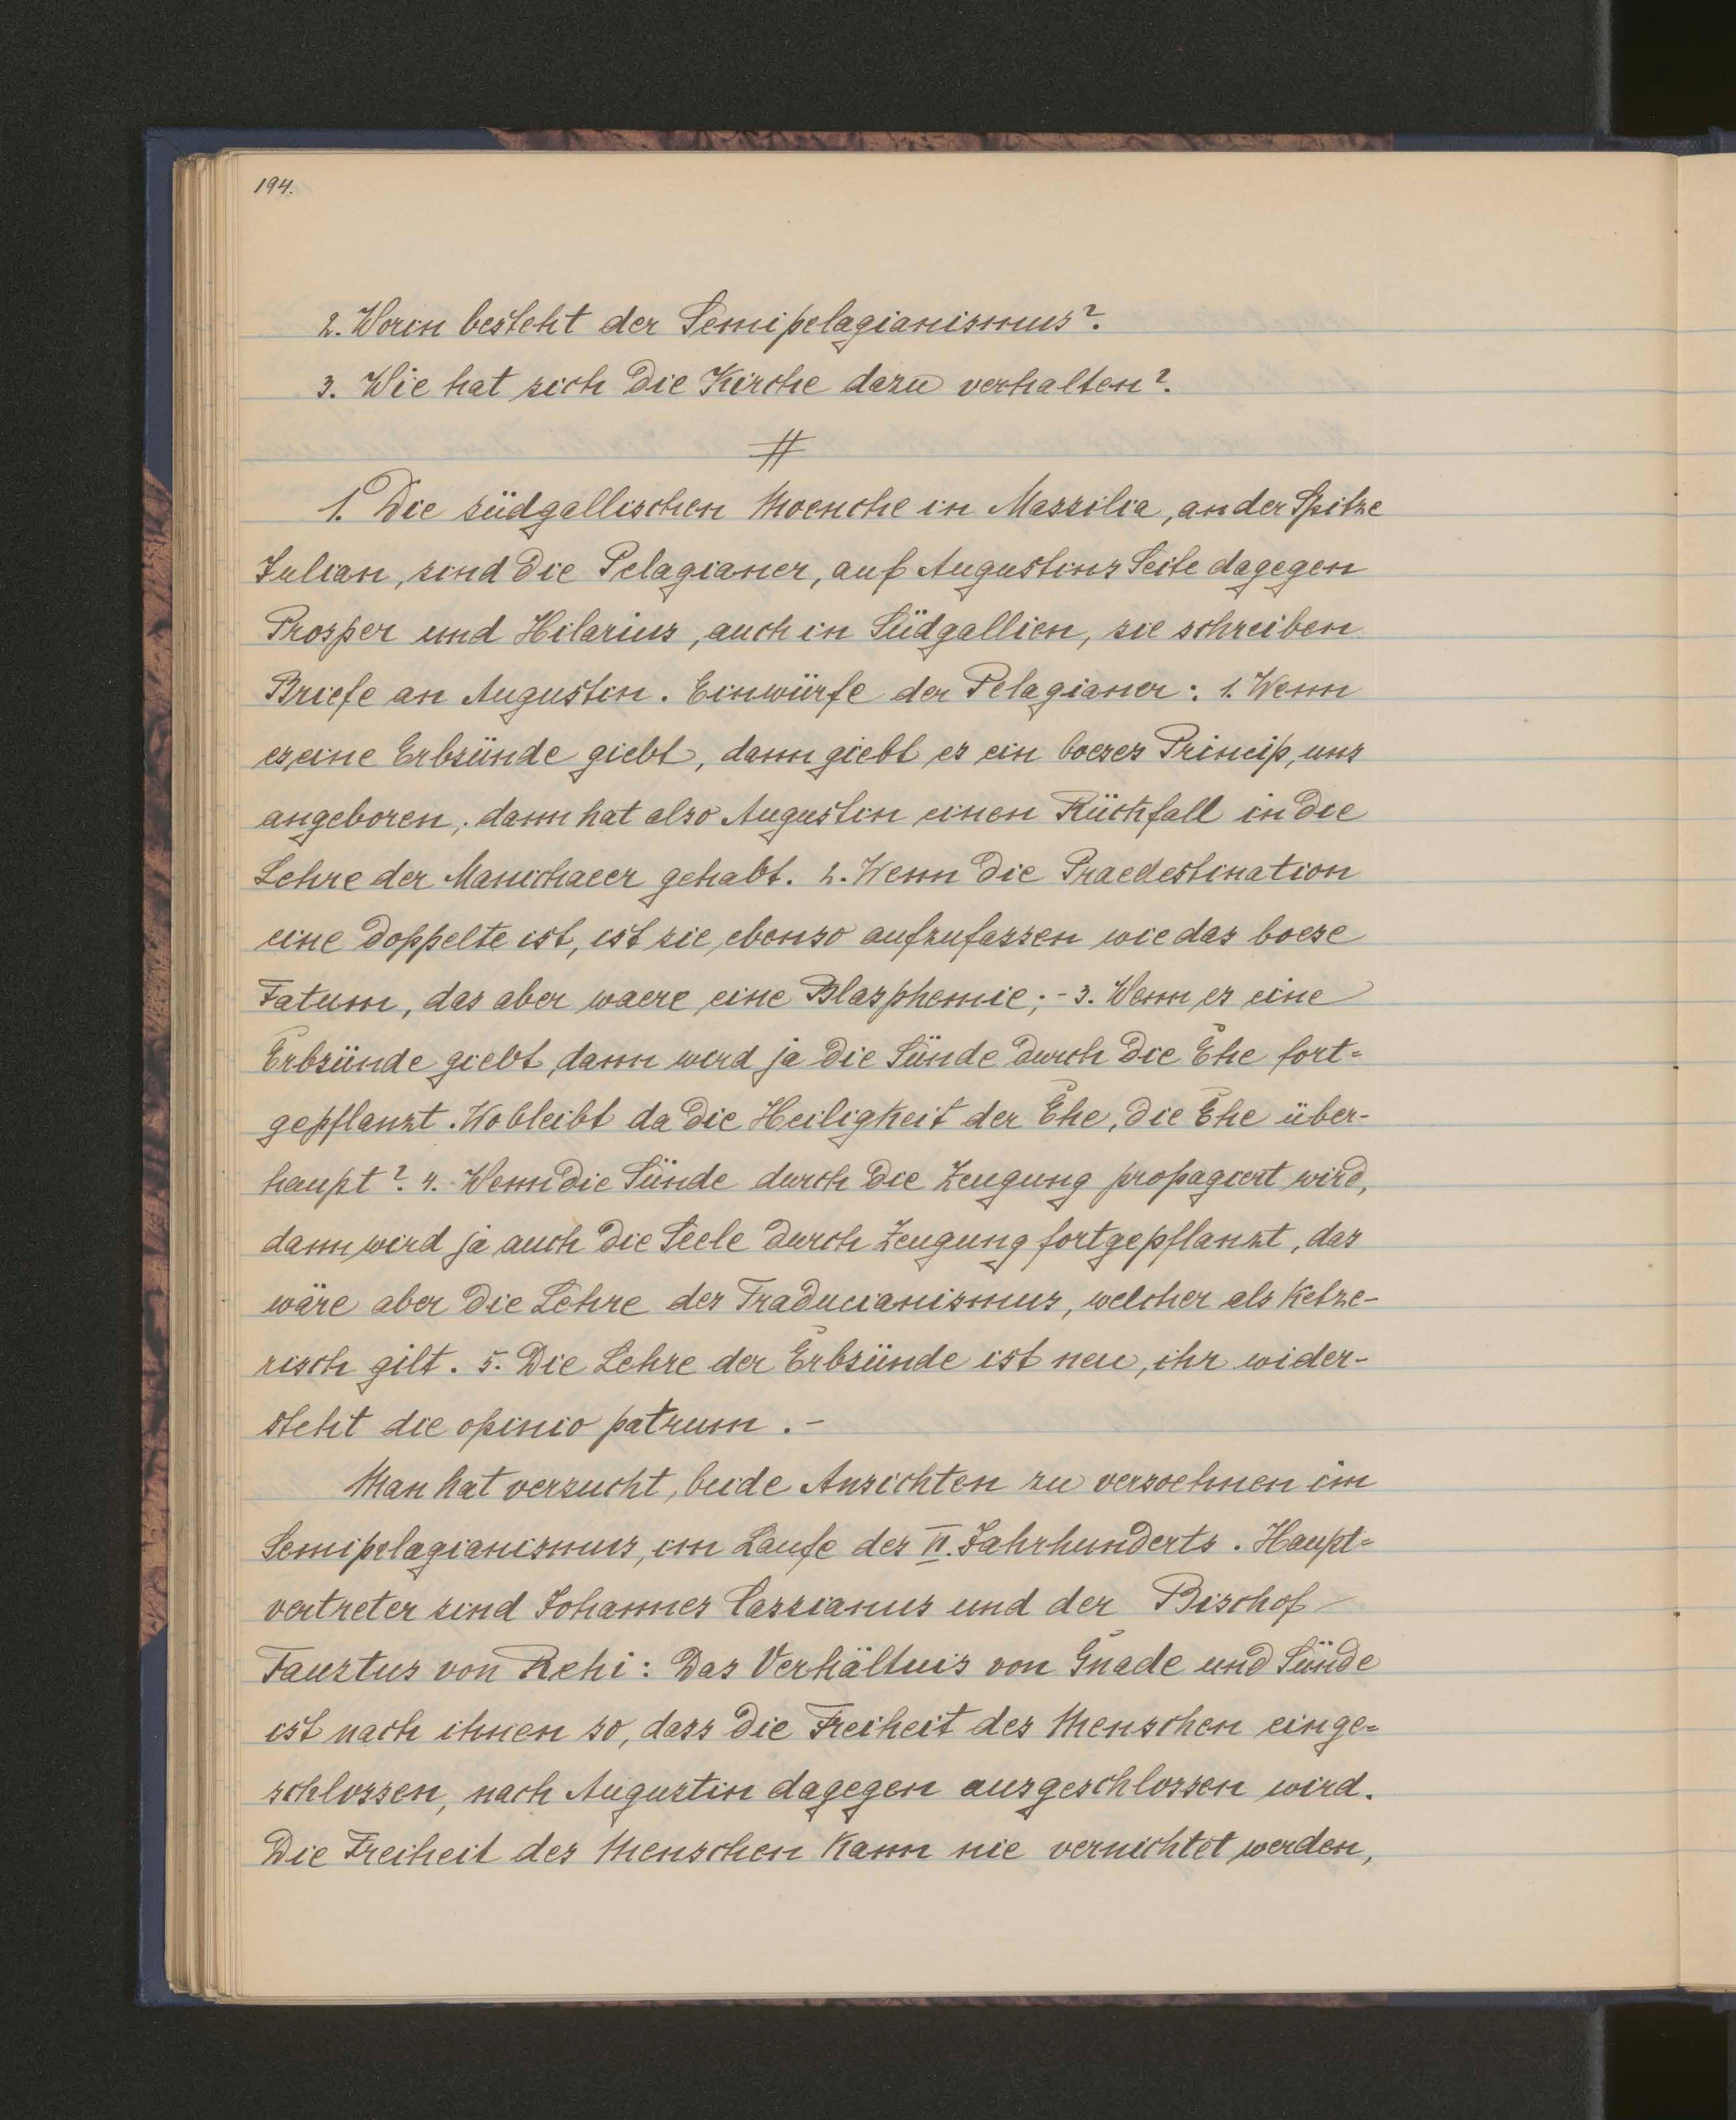 194.
2. Worin besteht der Semipelagianismus?.
3. Wie hat sich die Kirche dazu verhalten?.
#
1. Die südgallischen Moenche in Massilia, an der Spitze
Julian, sind die Pelagianer, auf Augustins Seite dagegen
Prosper und Hilarius, auch in Südgallien, sie schreiben
Briefe an Augustin. Einwürfe der Pelagianer: 1. Wenn
es eine Erbsünde giebt, dann giebt es ein boeses Princip, uns
angeboren; dann hat also Augustin einen Rückfall in die
Lehre der Manichaeer gehabt. 2. Wenn die Praedestination
eine doppelte ist, ist sie ebenso aufzufassen wie das boese
Fatum, das aber waere eine Blasphemie; - 3. Wenn es eine
Erbsünde giebt, dann wird ja die Sünde durch die Ehe fort=
gepflanzt. Wo bleibt da die Heiligkeit der Ehe, die Ehe über-
haupt?. 4. Wenn die Sünde durch die Zeugung propagiert wird,
dann wird ja auch die Seele durch Zeugung fortgepflanzt, das
wäre aber die Lehre des Traducianismus, welcher als Ketze-
risch gilt. 5. Die Lehre der Erbsünde ist neu, ihr wider-
steht die opinio patrum. -
Man hat versucht, beide Ansichten zu versoehnen im
Semipelagianismus, im Laufe des VI. Jahrhunderts. Haupt=
vertreter sind Johannes Cassianus und der Bischof
Faustus von Rehi: Das Verhältnis von Gnade und Sünde
ist nach ihnen so, dass die Freiheit des Menschen einge=
schlossen, nach Augustin dagegen ausgeschlossen wird.
Die Freiheit des Menschen Kann nie vernichtet werden,